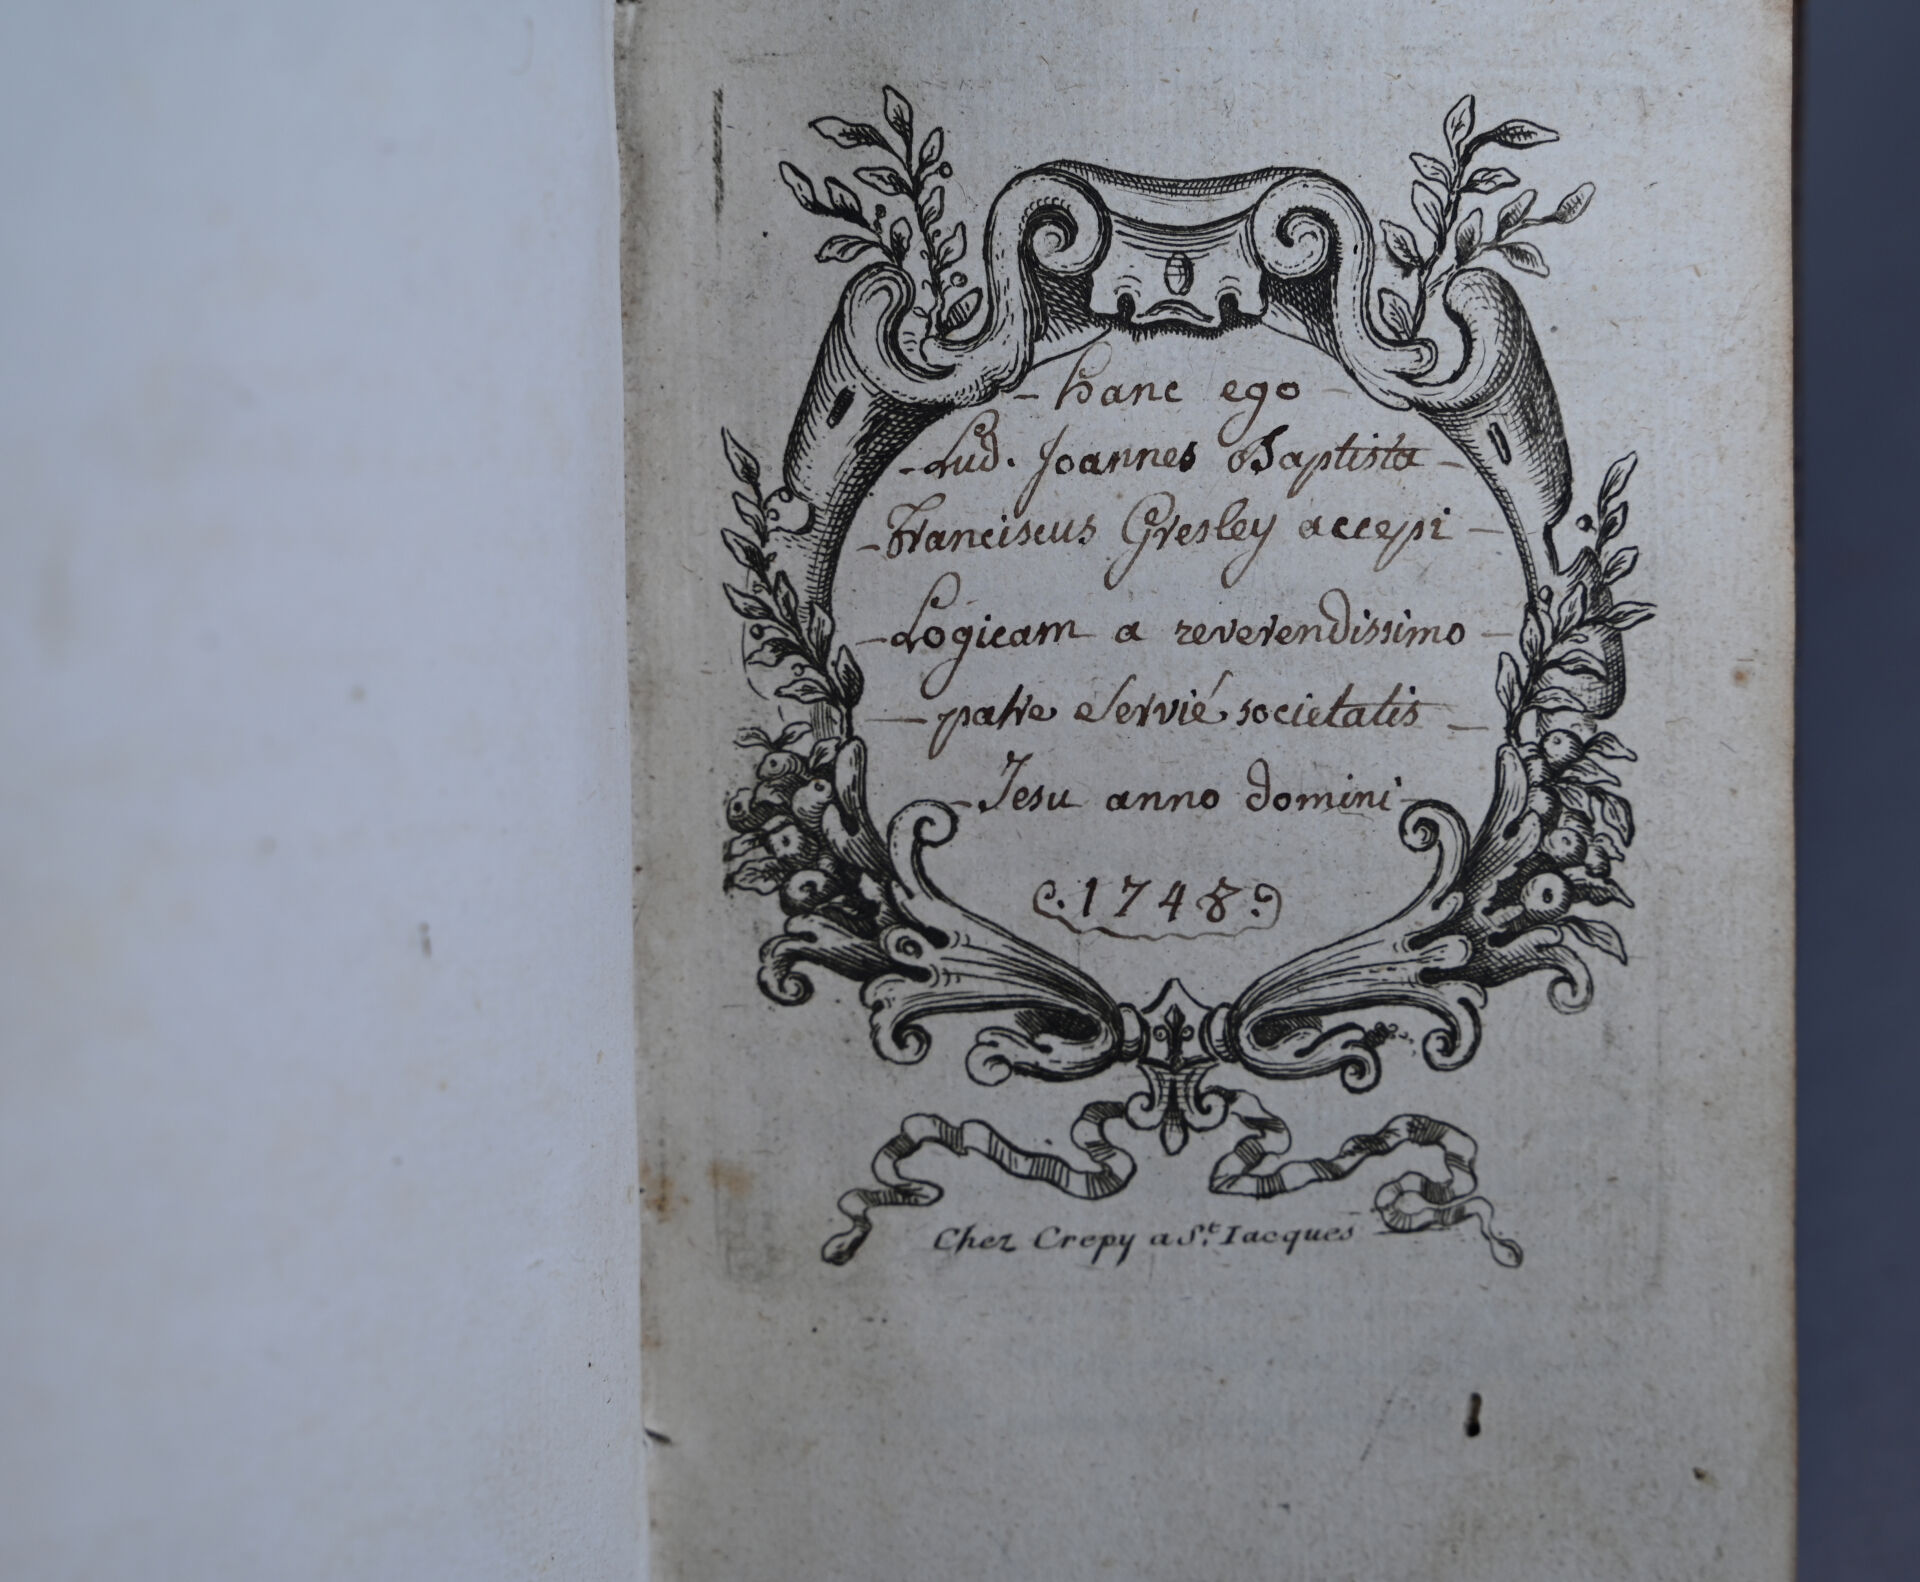 hanc ego
Lud. Joannes Baptista
Franciscus Gresley accepi
Logicam a reverendissimo
patre Servié societatis
Jesu anno domini
1748.
Chez Crepy a St. Iacques